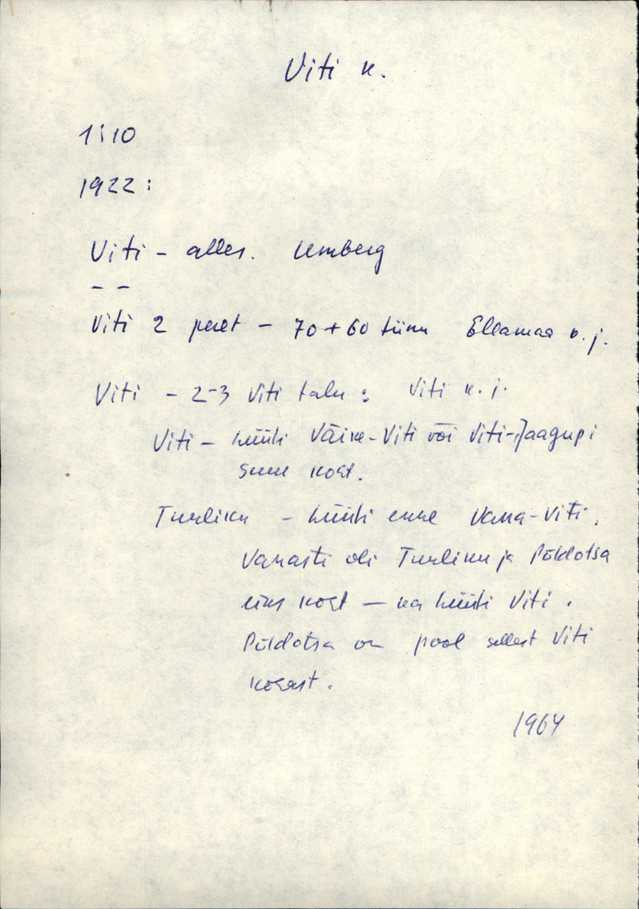 Viti k.
1:10
1922:
Viti - alles. Umberg
- -
Viti 2 peret - 70+60 tiinu Ellamaa v. j.
Viti - 2-3 Viti talu: Viti k. j.
Viti - hüüti Väike-Viti või Viti-Jaagupi
suur koht.
Turliku - hüüti enne Vana-Viti.
Vanasti oli Turliku ja Põldotsa
üks koht - ka hüüti Viti.
Põldotsa on pool sellest Viti
kohast.
1964